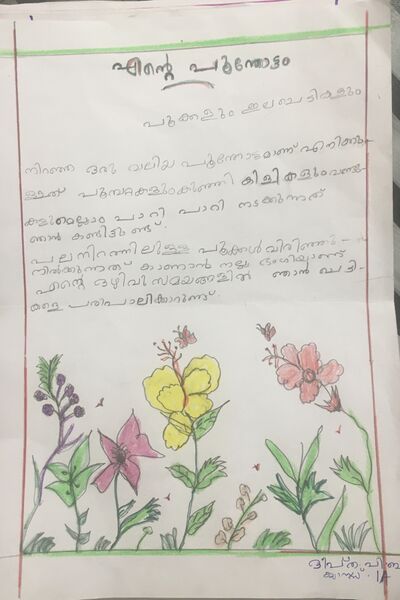 എന്റെ പൂന്തോട്ടം
പൂക്കളും ഇലചെടികളും
നിറഞ്ഞ ഒരു വലിയ പൂന്തോട്ടമാണ് എനിക്കു-
ള്ളത് പൂമ്പാറ്റകളും കുഞ്ഞി കിളികളും വണ്ടു-
കളുമെല്ലാം പാറി പാറി നടക്കുന്നത്
ഞാൻ കണ്ടിട്ടുണ്ട്.
പല നിറത്തിലുള്ള പൂക്കൾ വിരിഞ്ഞു-
നിൽക്കുന്നത് കാണാൻ നല്ല ഭംഗിയാണ്
എന്റെ ഒഴിവ് സമയങ്ങളിൽ ഞാൻ ചെടി-
കളെ പരിപാലിക്കാറുണ്ട്.
ദീപ്ത. പി.
ക്ലാസ്സ്. 1A